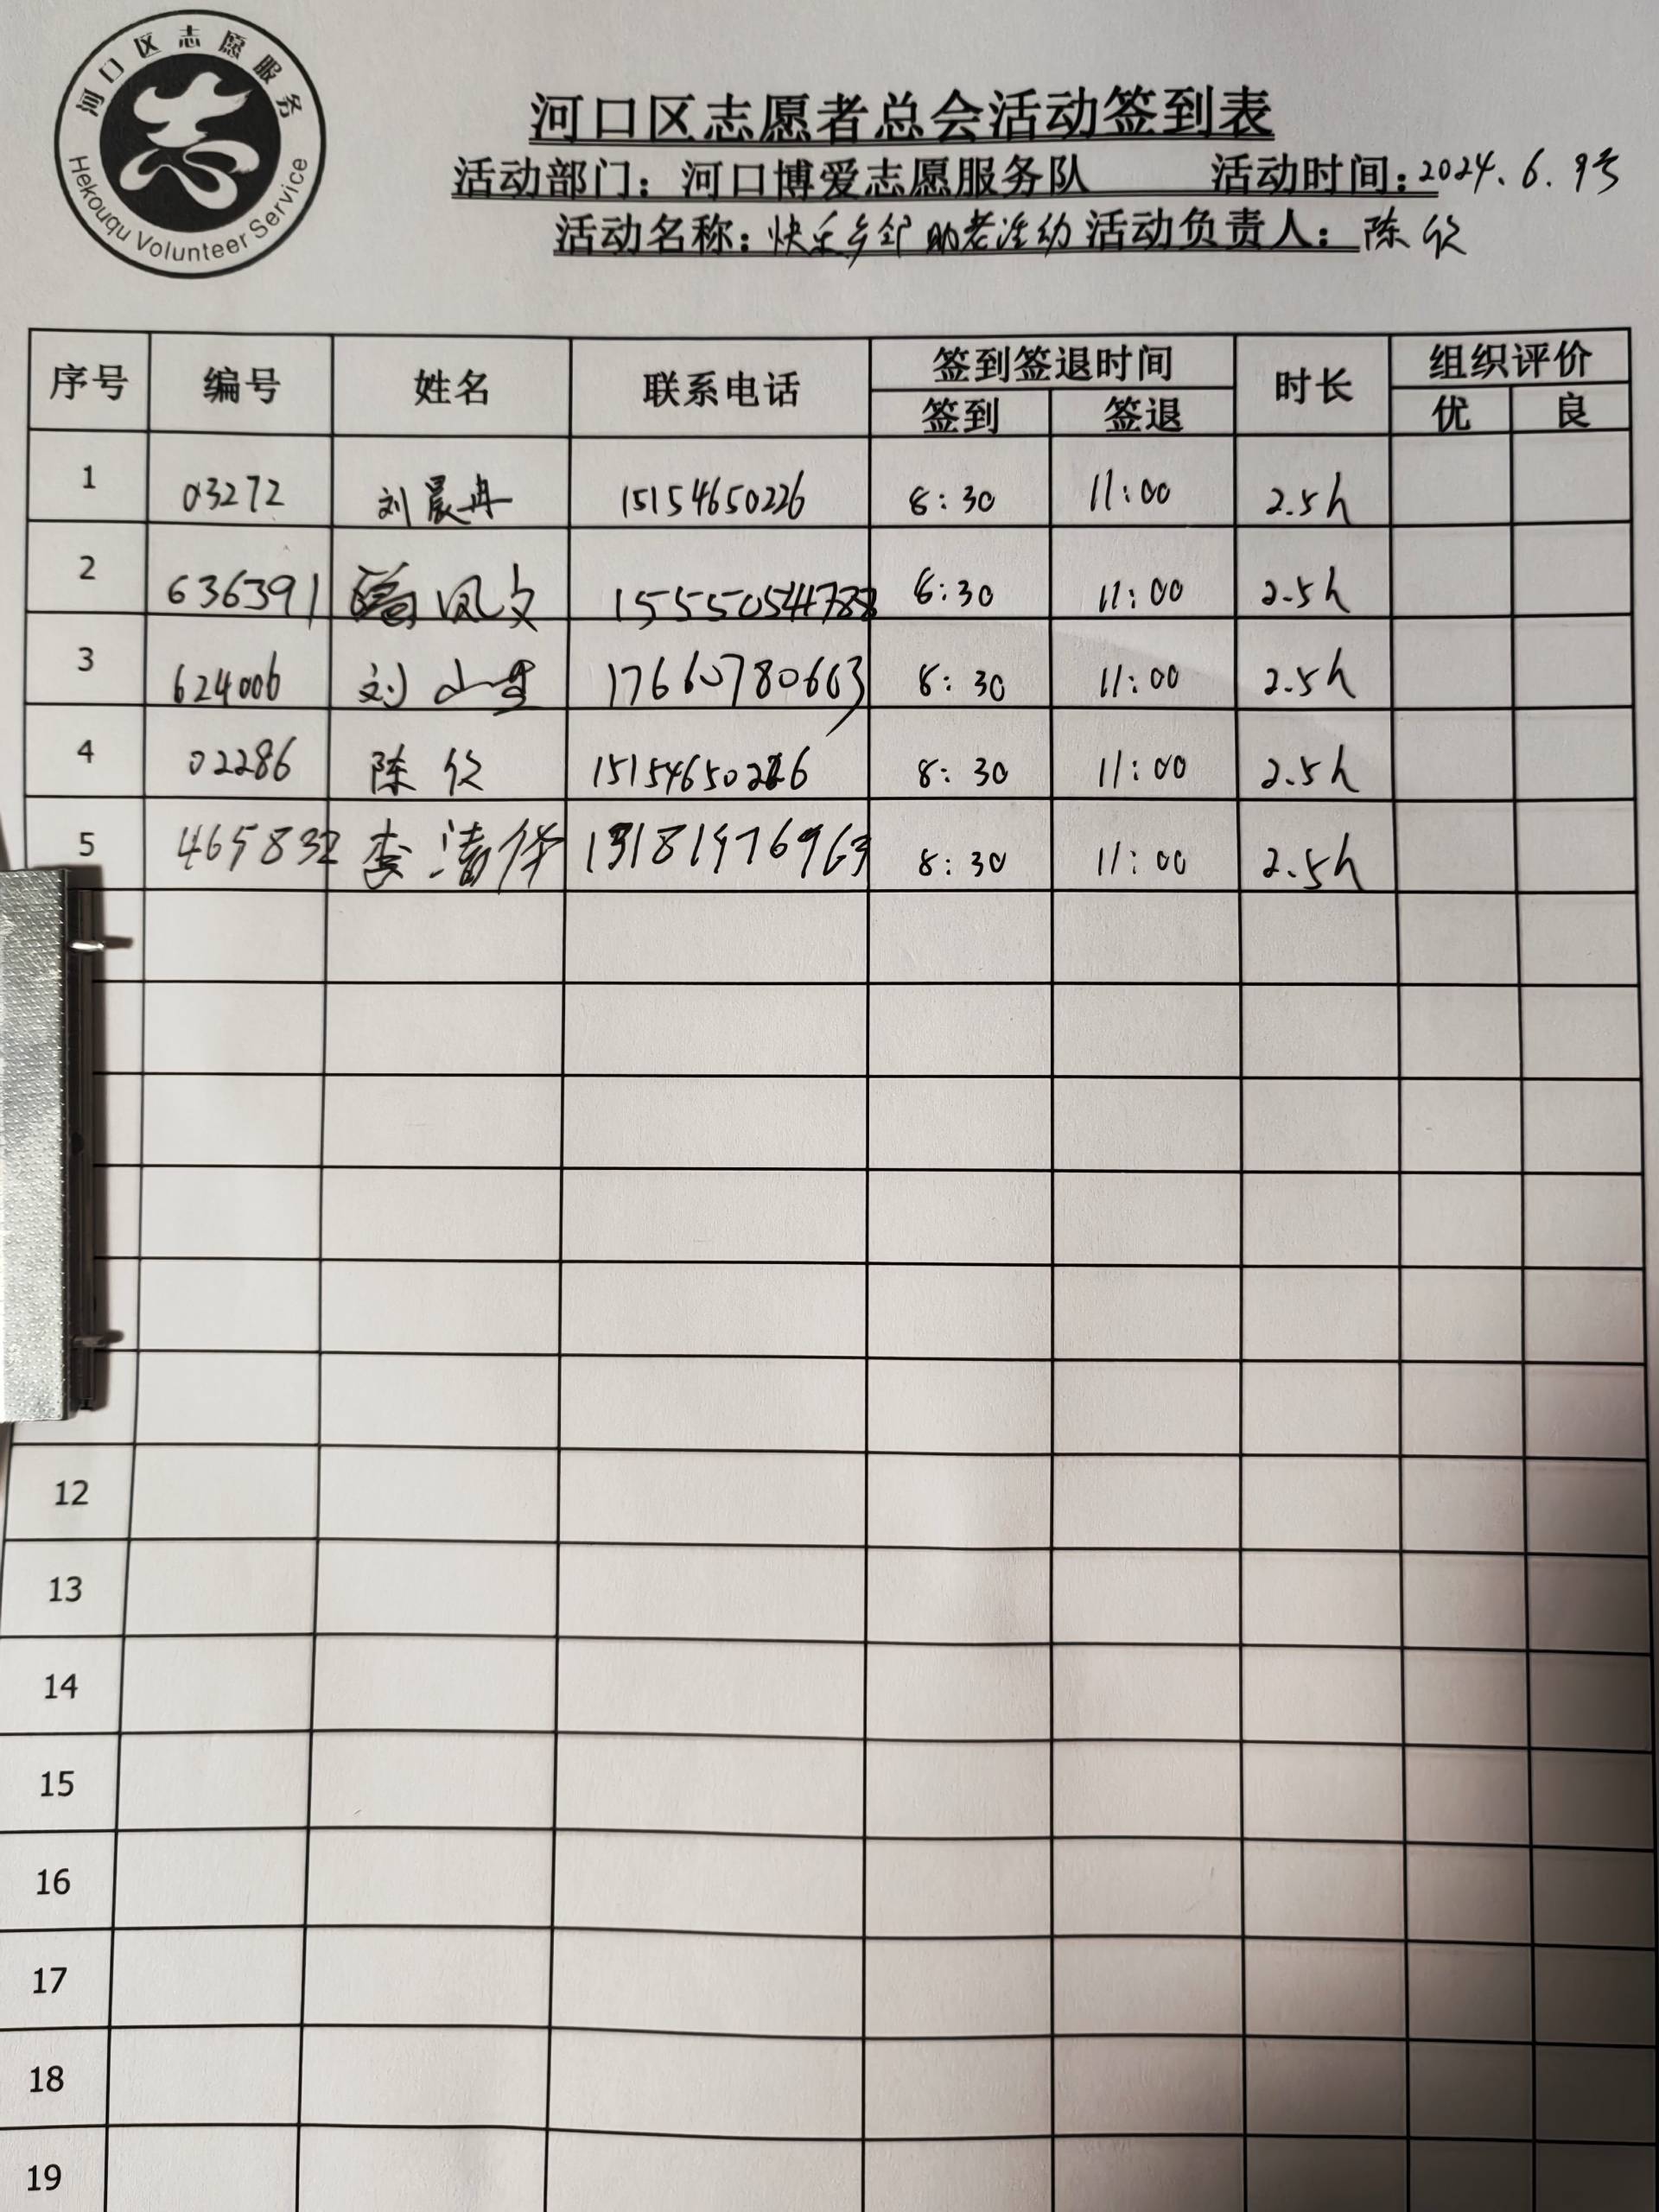 河口区志愿服务
Hekouqu Volunteer Service
河口区志愿者总会活动签到表
活动部门：河口博爱志愿服务队 活动时间：2024.6.9号
活动名称：快乐乡邻 助老 幼 活动负责人：陈
序号 编号 姓名 联系电话 签到签退时间 时长 组织评价
签到 签退 优 良
1 03272 刘晨冉 15154650226 8:30 11:00 2.5h
2 636391 凤文 15555054788 8:30 11:00 2.5h
3 624006 刘 17660780663 8:30 11:00 2.5h
4 02286 陈 15154650226 8:30 11:00 2.5h
5 465832 李清华 8:30 11:00 2.5h
12
13
14
15
16
17
18
19